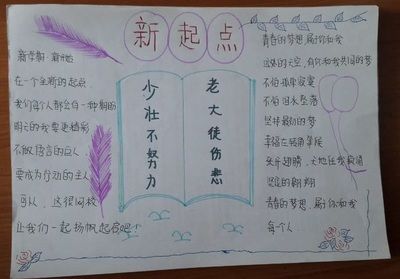 新起点
新学期 新开始
在一个全新的起点
我们每个人都会有一种期盼
明天的我要更精彩
不做语言的巨人
要成为行动的主人
可以，这很阅校
让我们一起扬帆起启吧！
少壮不努力
老大徒伤悲
青春的梦想，属于你和我
的天空，有你和我共同的梦
不怕孤单寂寞
不怕泪水坠落
坚持最初的梦
幸福在转角等候
张开翅膀，天地任我翱翔
坚定的翱翔
青春的梦想，属于你和我
每个人